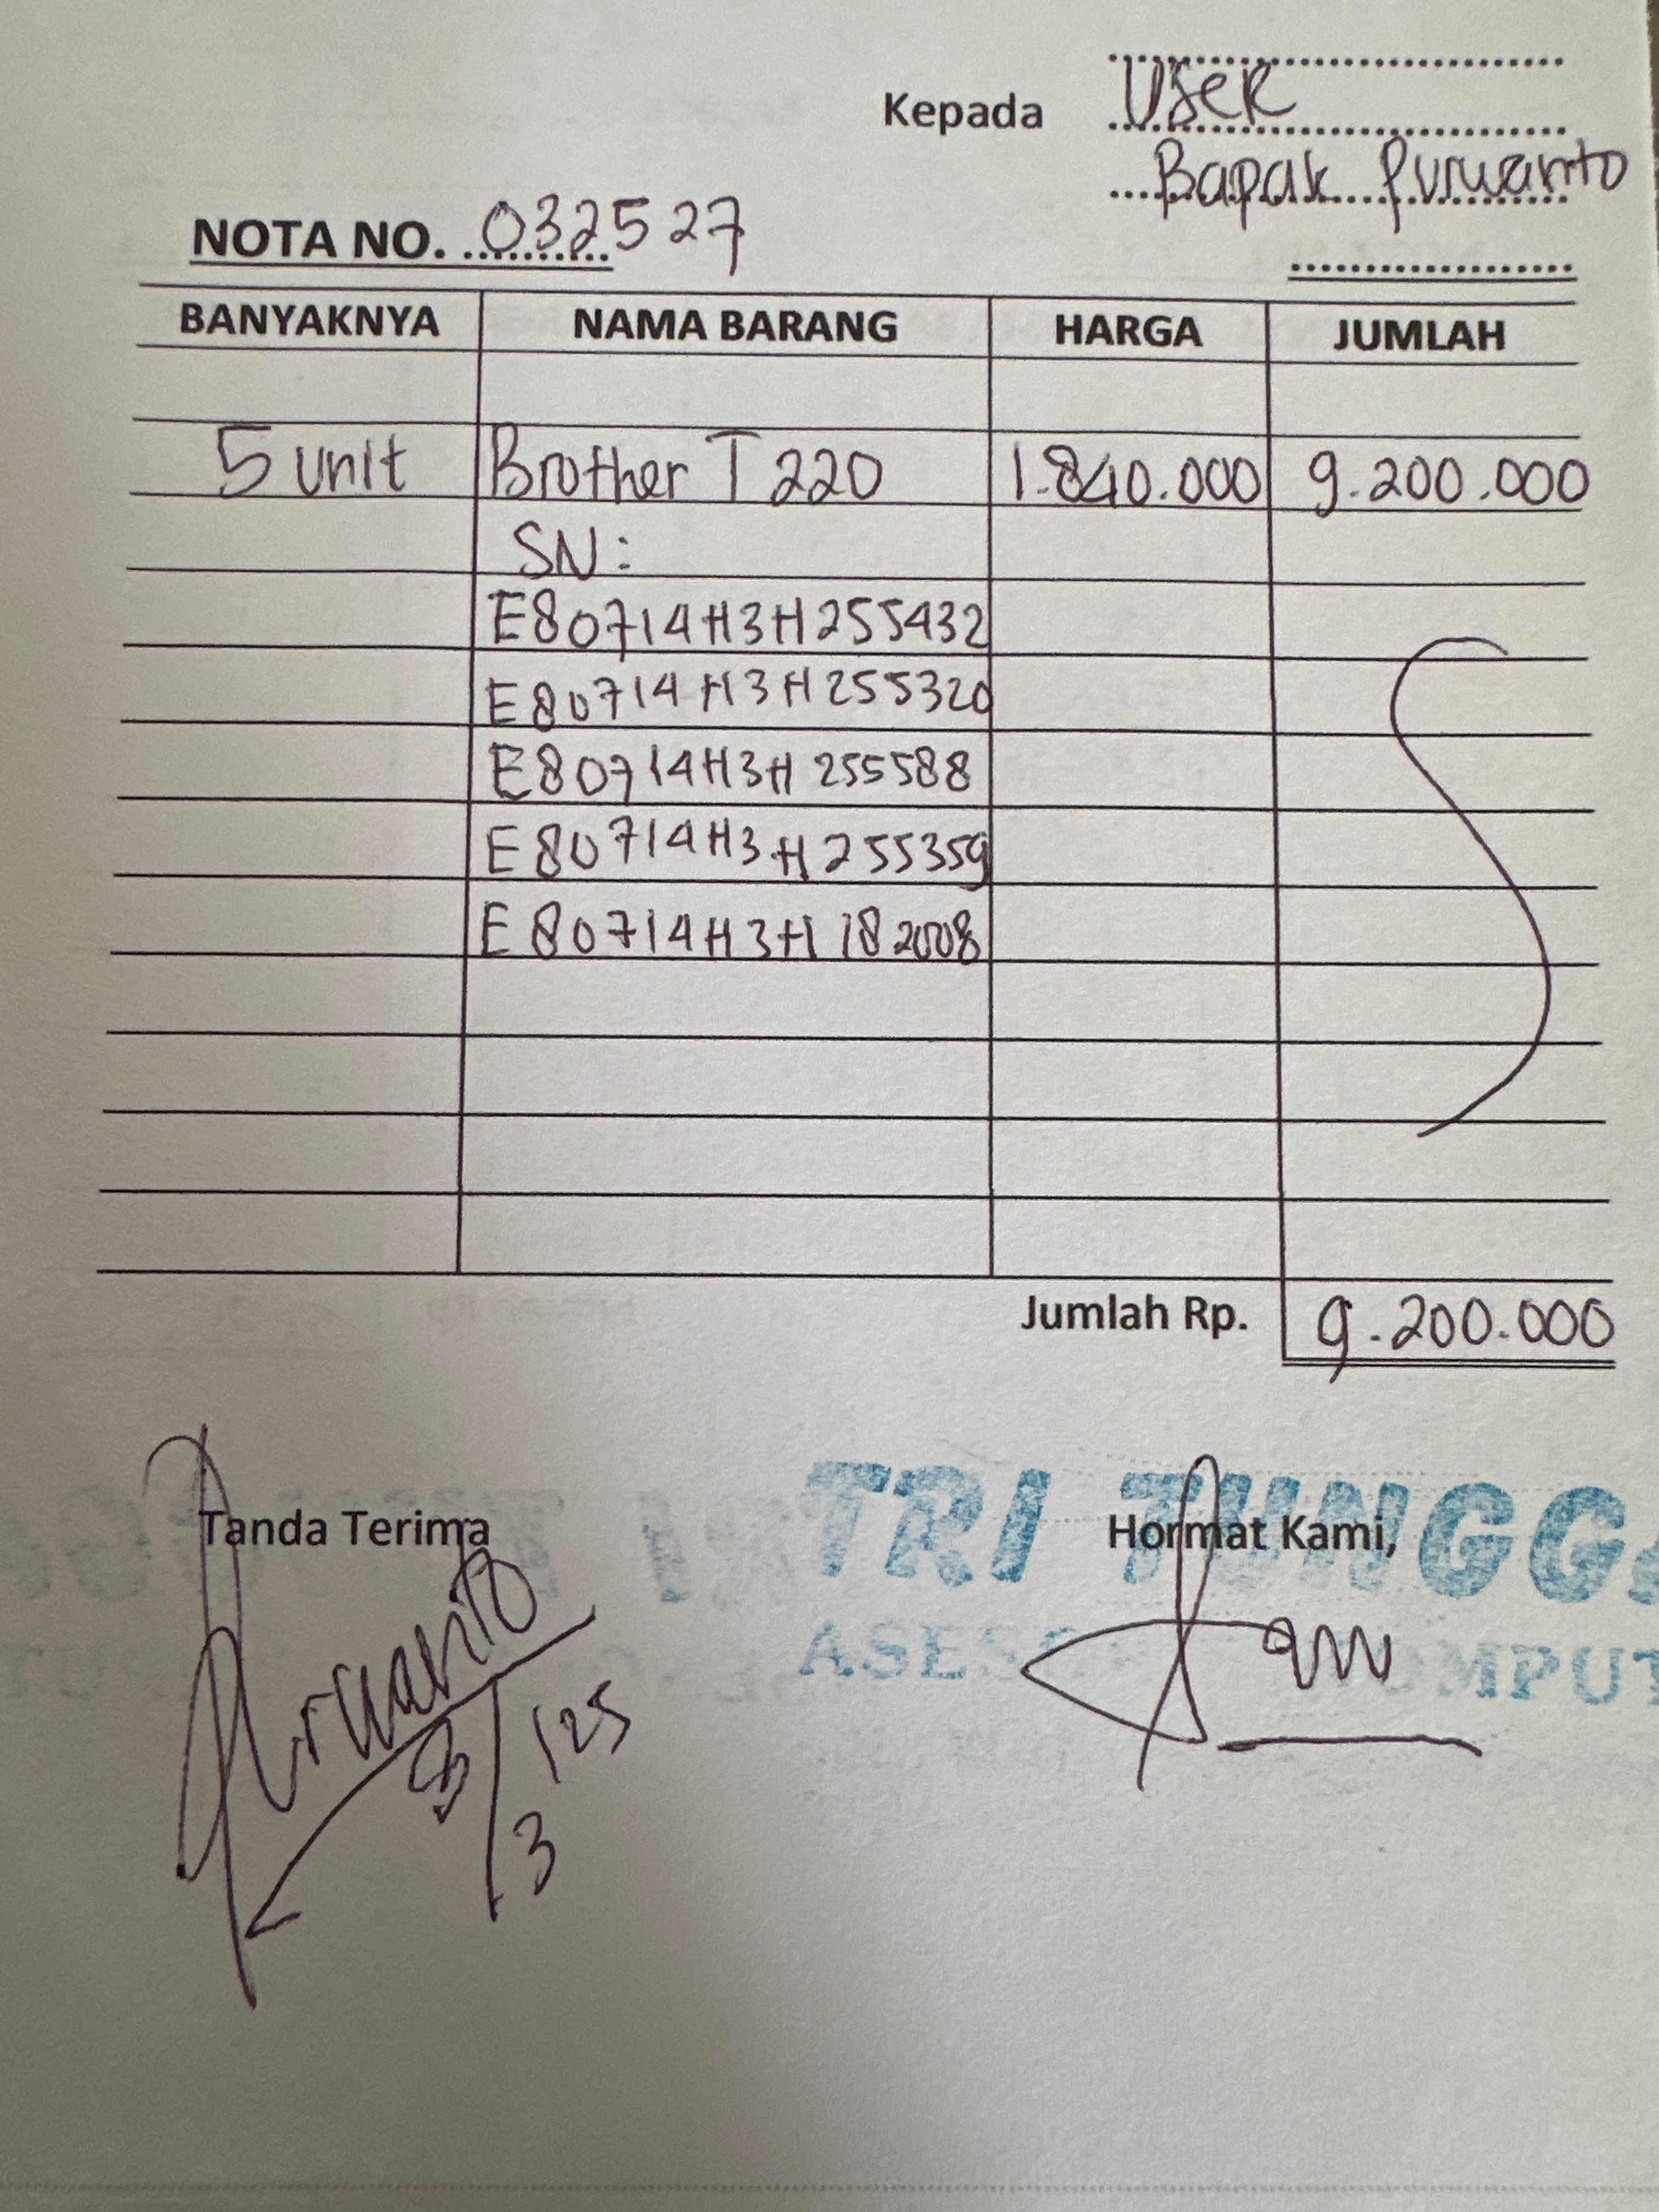 Kepada User
Bapak Purwanto
NOTA NO. 032527
BANYAKNYA NAMA BARANG HARGA JUMLAH
5 unit Brother T 220 1.840.000 9.200.000
SN:
E80714H3H255432
E80714H3H255320
E80714H3H255588
E80714H3H255359
E80714H3H182008
Jumlah Rp. 9.200.000
TRI TUNGGA
Tanda Terima Hormat Kami,
Purwanto
8/3/25